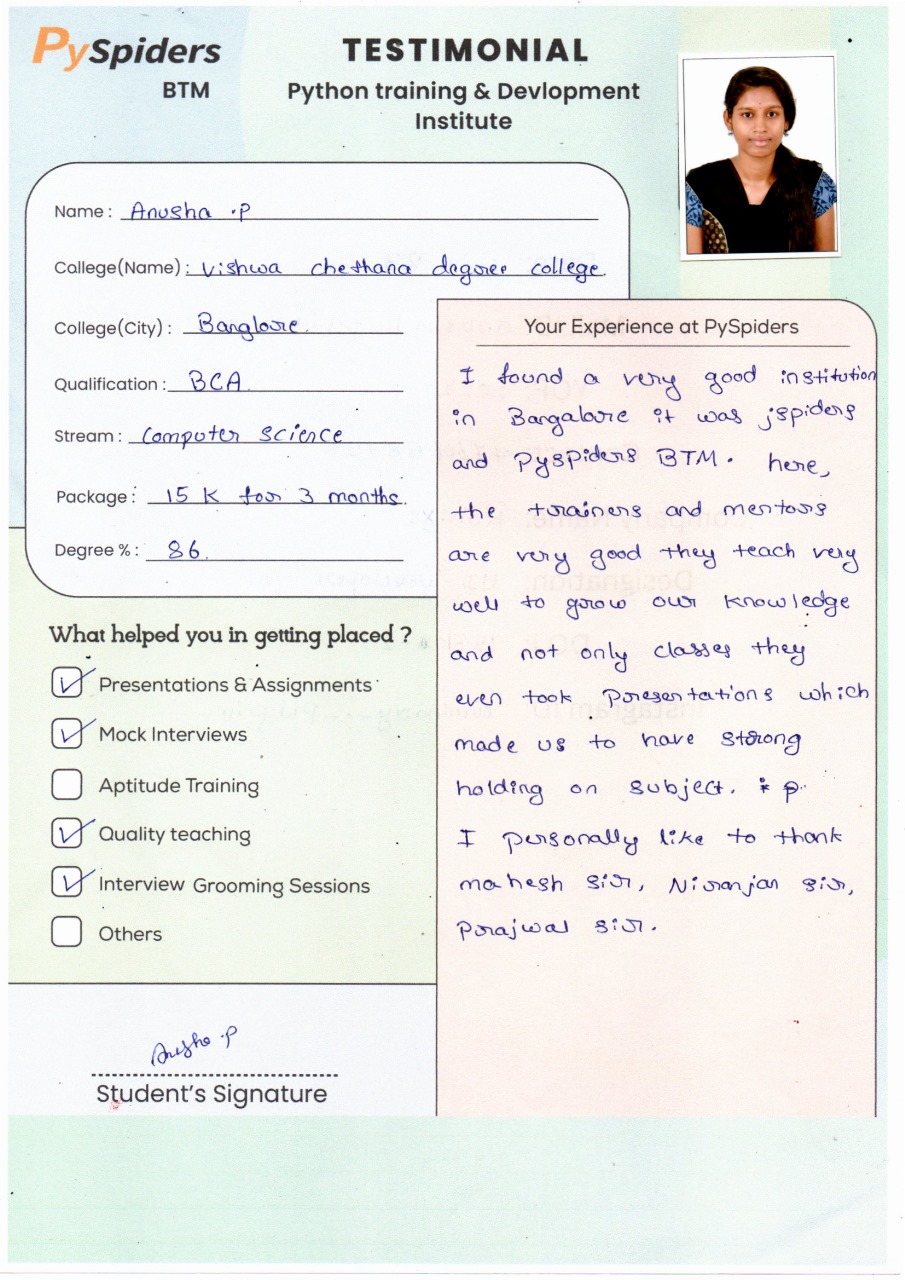 PySpiders
BTM
TESTIMONIAL
Python training & Devlopment
Institute
Name : Anusha .P
College(Name) : Vishwa chethana degree college.
College(City) : Banglore.
Qualification : BCA.
Stream : Computer science
Package : 15 K for 3 months.
Degree % : 86.
What helped you in getting placed ?
Presentations & Assignments
Mock Interviews
Aptitude Training
Quality teaching
Interview Grooming Sessions
Others
Anusha .P
Student's Signature
Your Experience at PySpiders
I found a very good institution
in Bangalore it was jspiders
and Pyspiders BTM. here,
the trainers and mentors
are very good they teach very
well to grow our knowledge
and not only classes they
even took Presentations which
made us to have strong
holding on subject.
I personally like to thank
mahesh sir, Niranjan sir,
Prajwal sir.